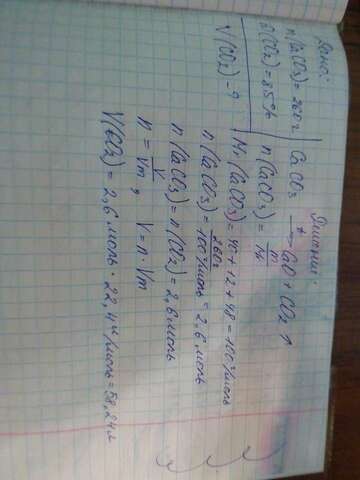 Дано:
m(CaCO3) = 260 г
η(CO2) = 85%
V(CO2) - ?
Рішення:
CaCO3 →t CaO + CO2 ↑
n(CaCO3) = m/M
Mr(CaCO3) = 40 + 12 + 48 = 100 г/моль
n(CaCO3) = 260г/100г/моль = 2,6 моль
n(CaCO3) = n(CO2) = 2,6 моль
n = V/Vm, V = n · Vm
V(CO2) = 2,6 моль · 22,4 л/моль = 58,24 л